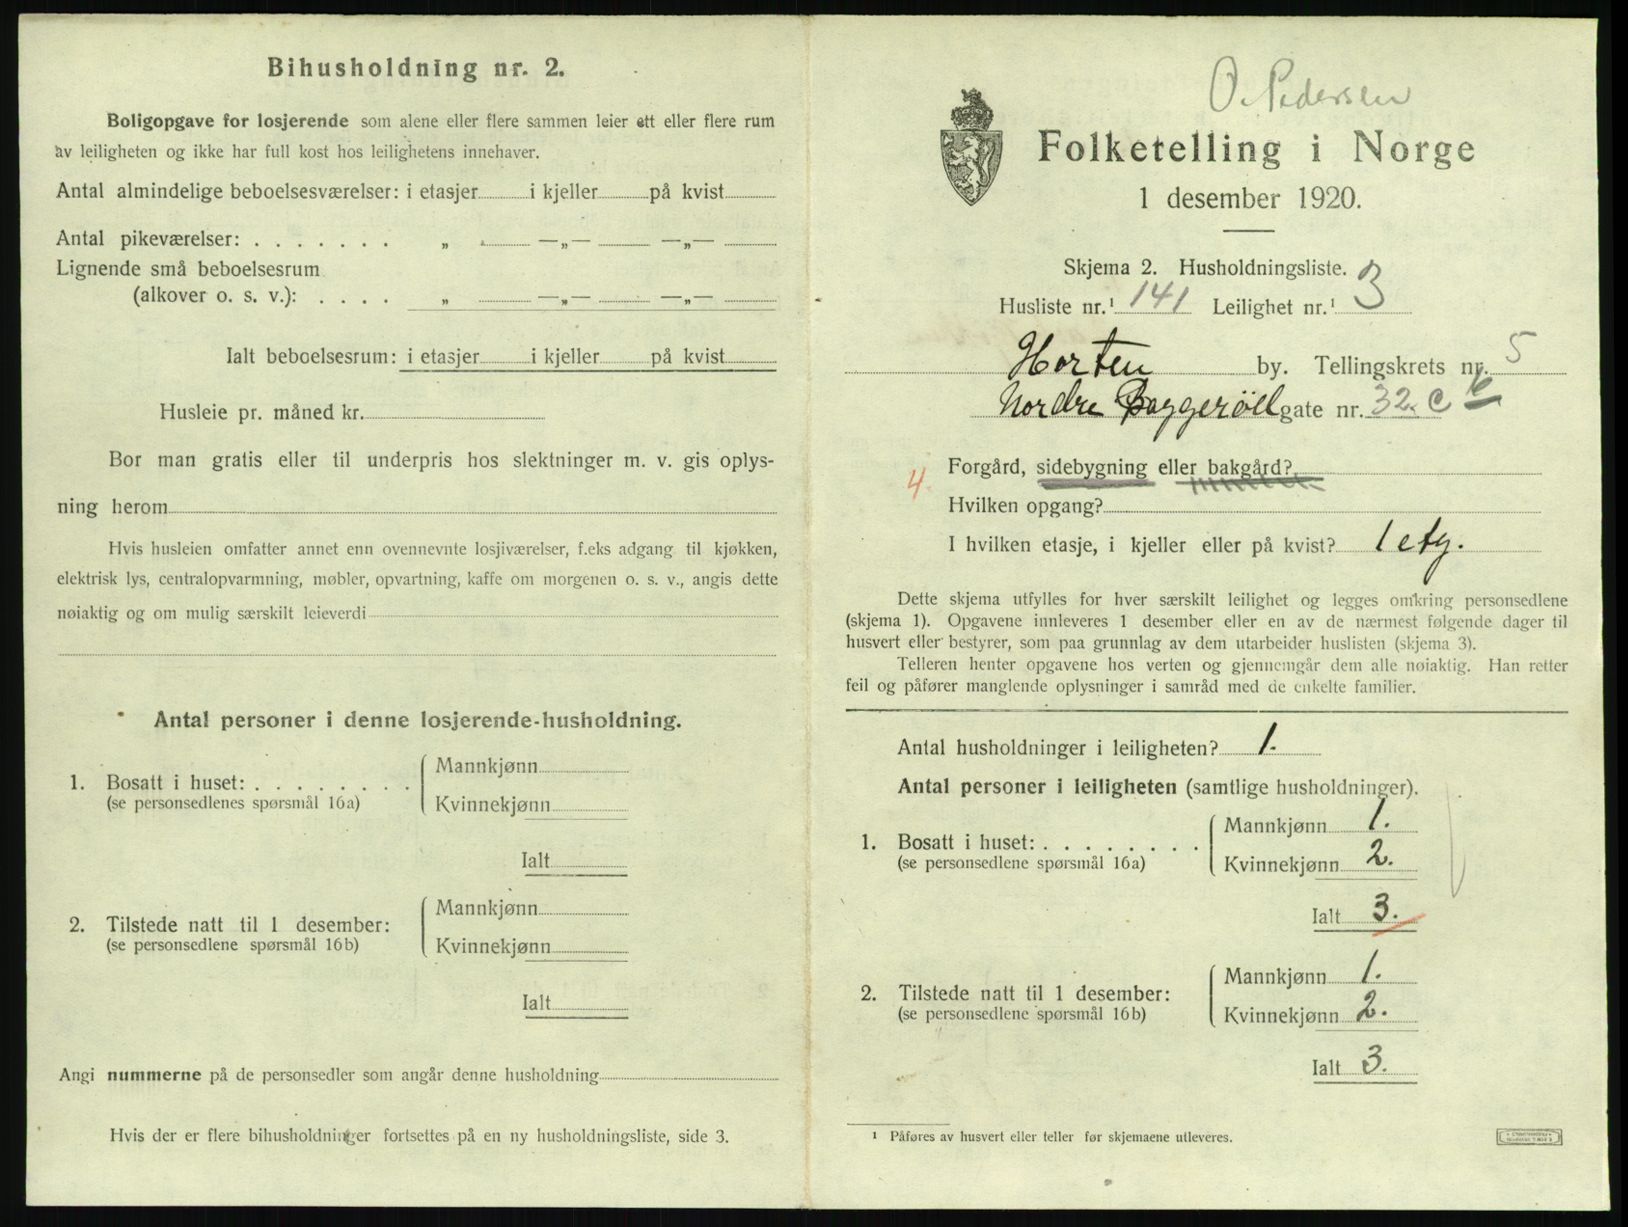 Bihusholdning nr. 2.
Boligopgave for losjerende som alene eller flere sammen leier ett eller flere rum
av leiligheten og ikke har full kost hos leilighetens innehaver.
Antal almindelige beboelsesværelser: i etasjer i kjeller på kvist
Antal pikeværelser: . . . . . . . „ —„— —„—
Lignende små beboelsesrum
(alkover o. s. v.): . . . . „ —„— —„—
Ialt beboelsesrum: i etasjer i kjeller på kvist
Husleie pr. måned kr.
Bor man gratis eller til underpris hos slektninger m. v. gis oplys-
ning herom
Hvis husleien omfatter annet enn ovennevnte losjiværelser, f.eks adgang til kjøkken,
elektrisk lys, centralopvarmning, møbler, opvartning, kaffe om morgenen o. s. v., angis dette
nøiaktig og om mulig særskilt leieverdi
Antal personer i denne losjerende-husholdning.
1. Bosatt i huset: . . . . . . . .
(se personsedlenes spørsmål 16a)
Mannkjønn
Kvinnekjønn
Ialt
2. Tilstede natt til 1 desember:
(se personsedlene spørsmål 16b)
Mannkjønn
Kvinnekjønn
Ialt
Angi nummerne på de personsedler som angår denne husholdning
Hvis der er flere bihusholdninger fortsettes på en ny husholdningsliste, side 3.
O. Pedersen
Folketelling i Norge
1 desember 1920.
Skjema 2. Husholdningsliste.
Husliste nr.¹ 141 Leilighet nr.¹ 3
Horten by. Tellingskrets nr. 5
Nordre Baggerød gate nr. 32. c
4. Forgård, sidebygning eller bakgård?
Hvilken opgang?
I hvilken etasje, i kjeller eller på kvist? 1 etg.
Dette skjema utfylles for hver særskilt leilighet og legges omkring personsedlene
(skjema 1). Opgavene innleveres 1 desember eller en av de nærmest følgende dager til
husvert eller bestyrer, som paa grunnlag av dem utarbeider huslisten (skjema 3).
Telleren henter opgavene hos verten og gjennemgår dem alle nøiaktig. Han retter
feil og påfører manglende oplysninger i samråd med de enkelte familier.
Antal husholdninger i leiligheten? 1.
Antal personer i leiligheten (samtlige husholdninger).
1. Bosatt i huset: . . . . . . . .
(se personsedlene spørsmål 16a)
Mannkjønn 1.
Kvinnekjønn 2.
Ialt 3.
2. Tilstede natt til 1 desember:
(se personsedlene spørsmål 16b)
Mannkjønn 1.
Kvinnekjønn 2.
Ialt 3.
¹ Påføres av husvert eller teller før skjemaene utleveres.